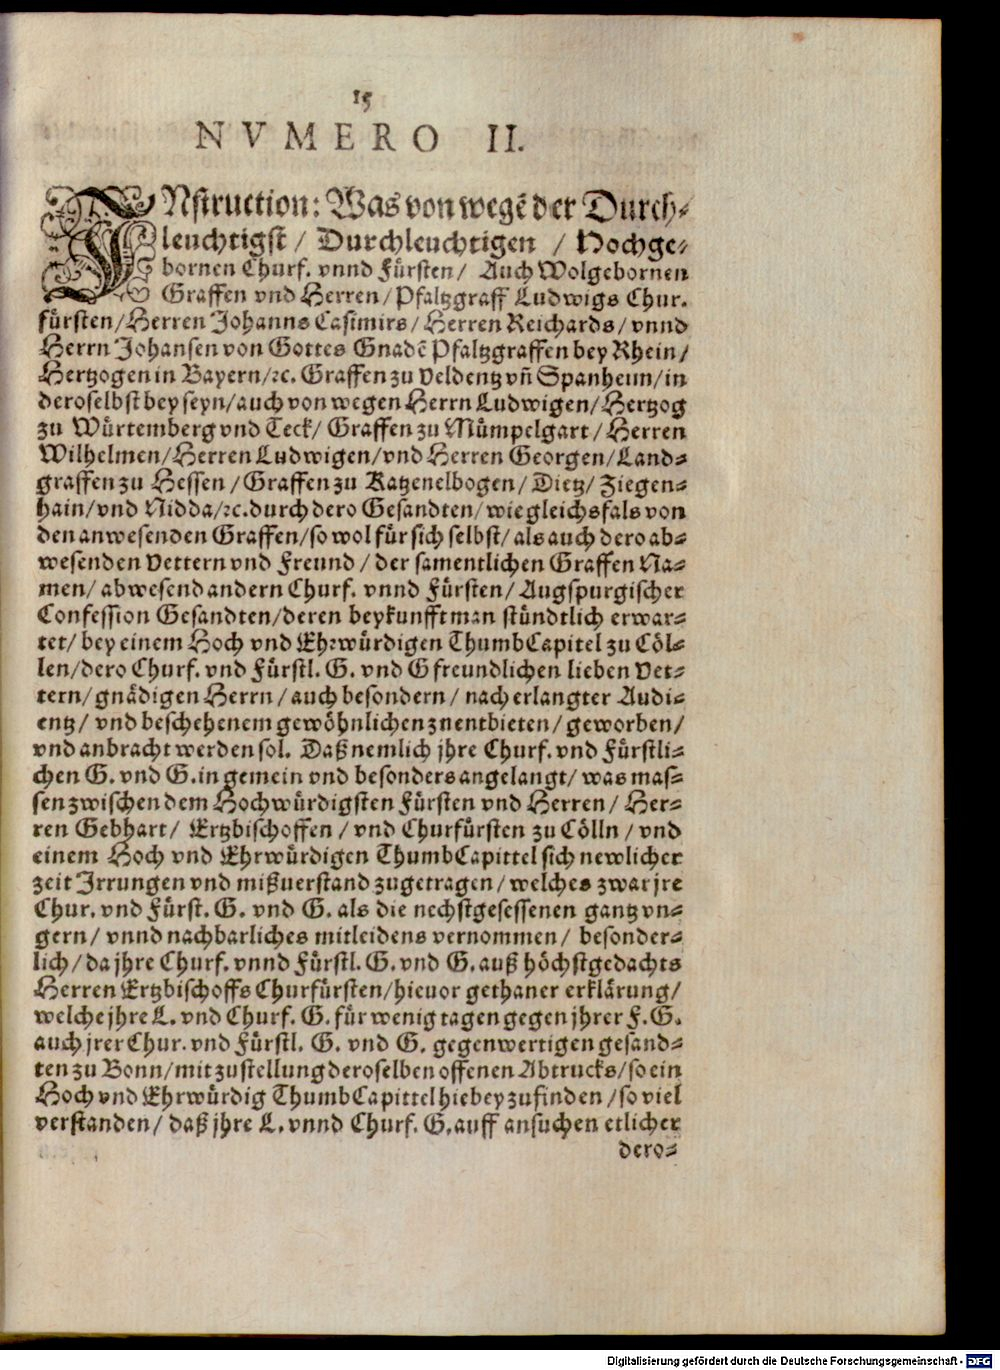 15
NVMERO II.
INstruction: Was von wegẽ der Durch⸗
leuchtigst / Durchleuchtigen / Hochge⸗
bornen Churf. vnnd Fürsten / Auch Wolgebornen
Graffen vnd Herren / Pfaltzgraff Ludwigs Chur.
fürsten / Herren Johanns Casimirs / Herren Reichards / vnnd
Herrn Johansen von Gottes Gnadẽ Pfaltzgraffen bey Rhein /
Hertzogen in Bayern / ꝛc. Graffen zu Veldentz vñ Spanheim / in
deroselbst bey seyn / auch von wegen Herrn Ludwigen / Hertzog
zu Würtemberg vnd Teck / Graffen zu Mümpelgart / Herren
Wilhelmen / Herren Ludwigen / vnd Herren Georgen / Land⸗
graffen zu Hessen / Graffen zu Katzenelbogen / Dietz / Ziegen⸗
hain / vnd Nidda / ꝛc. durch dero Gesandten / wie gleichsfals von
den anwesenden Graffen / so wol für sich selbst / als auch dero ab⸗
wesenden Vettern vnd Freund / der samentlichen Graffen Na⸗
men / abwesend andern Churf. vnnd Fürsten / Augspurgischer
Confession Gesandten / deren beykunfft man stündtlich erwar⸗
tet / bey einem Hoch vnd Ehrwürdigen ThumbCapitel zu Cöl⸗
len / dero Churf. vnd Fürstl. G. vnd G freundlichen lieben Vet⸗
tern / gnädigen Herrn / auch besondern / nach erlangter Audi⸗
entz / vnd beschehenem gewöhnlichen znentbieten / geworben /
vnd anbracht werden sol. Daß nemlich jhre Churf. vnd Fürstli⸗
chen G. vnd G. in gemein vnd besonders angelangt / was mas⸗
sen zwischen dem Hochwürdigsten Fürsten vnd Herren / Her⸗
ren Gebhart / Ertzbischoffen / vnd Churfürsten zu Cölln / vnd
einem Hoch vnd Ehrwürdigen ThumbCapittel sich newlicher
zeit Irrungen vnd mißuerstand zugetragen / welches zwar jre
Chur. vnd Fürst. G. vnd G. als die nechstgesessenen gantz vn⸗
gern / vnnd nachbarliches mitleidens vernommen / besonder⸗
lich / da jhre Churf. vnnd Fürstl. G. vnd G. auß höchstgedachts
Herren Ertzbischoffs Churfürsten / hieuor gethaner erklärung /
welche jhre L. vnd Churf. G. für wenig tagen gegen jhrer F. G.
auch jrer Chur. vnd Fürstl. G. vnd G. gegenwertigen gesand⸗
ten zu Bonn / mit zustellung deroselben offenen Abtrucks / so ein
Hoch vnd Ehrwürdig ThumbCapittel hiebey zufinden / so viel
verstanden / daß jhre L. vnnd Churf. G. auff ansuchen etlicher
dero⸗
Digitalisierung gefördert durch die Deutsche Forschungsgemeinschaft - DFG